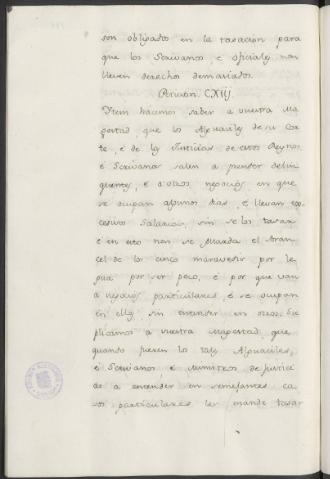 son obligados en la tasacion para
que los Scrivanos, e oficiales non
lleven derechos demasiados.
Peticion CXIIJ.
Ytem hacemos saber a vuestra Ma
gestad, que los Alguaciles de su Cor
te, é de las Justicias de estos Reynos
é Scrivanos salen a prender delin
quentes, é a otros negocios en que
se ocupan algunos dias, é llevan ex
cesivos Salarios, sin se los tasar
é en esto non se guarda el Aran
cel de los cinco maravedis por le
gua por ser poco, é por que van
a negocios particulares, é se ocupan
en ellos sin entender en otros. Su
plicamos a vuestra Magestad, que
quando fueren los tales Alguaciles,
é Scrivanos é Ministros de Justicia
a entender en semejantes ca
sos particulares les mande tasar